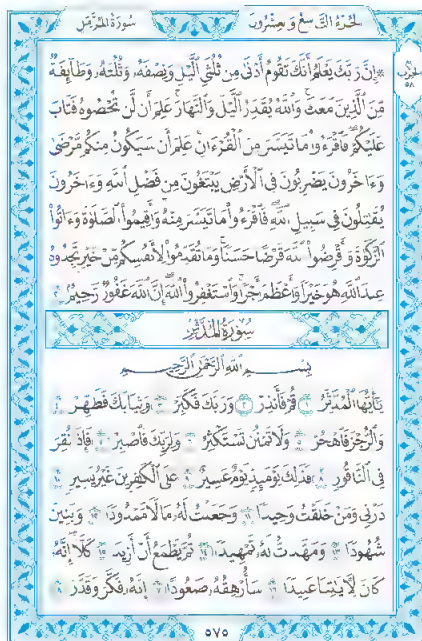 الجزء التاسع وعشرون
سورة المزمل
الحزب
٥٨
۞ إِنَّ رَبَّكَ يَعْلَمُ أَنَّكَ تَقُومُ أَدْنَىٰ مِن ثُلُثَيِ الَّيْلِ وَنِصْفَهُۥ وَثُلُثَهُۥ وَطَآئِفَةٌ
مِّنَ الَّذِينَ مَعَكَ وَاللَّهُ يُقَدِّرُ الَّيْلَ وَالنَّهَارَ عَلِمَ أَن لَّن تُحْصُوهُ فَتَابَ
عَلَيْكُمْ فَاقْرَءُوا۟ مَا تَيَسَّرَ مِنَ الْقُرْءَانِ عَلِمَ أَن سَيَكُونُ مِنكُم مَّرْضَىٰ
وَءَاخَرُونَ يَضْرِبُونَ فِي الْأَرْضِ يَبْتَغُونَ مِن فَضْلِ اللَّهِ وَءَاخَرُونَ
يُقَٰتِلُونَ فِي سَبِيلِ اللَّهِ فَاقْرَءُوا۟ مَا تَيَسَّرَ مِنْهُ وَأَقِيمُوا۟ الصَّلَوٰةَ وَءَاتُوا۟
الزَّكَوٰةَ وَأَقْرِضُوا۟ اللَّهَ قَرْضًا حَسَنًا وَمَا تُقَدِّمُوا۟ لِأَنفُسِكُم مِّنْ خَيْرٍ تَجِدُوهُ
عِندَ اللَّهِ هُوَ خَيْرًا وَأَعْظَمَ أَجْرًا وَاسْتَغْفِرُوا۟ اللَّهَ إِنَّ اللَّهَ غَفُورٌ رَّحِيمٌ ٢٠
سُورَةُ الْمُدَّثِّرِ
بِسْمِ اللَّهِ الرَّحْمَٰنِ الرَّحِيمِ
يَٰٓأَيُّهَا الْمُدَّثِّرُ ١ قُمْ فَأَنذِرْ ٢ وَرَبَّكَ فَكَبِّرْ ٣ وَثِيَابَكَ فَطَهِّرْ ٤
وَالرُّجْزَ فَاهْجُرْ ٥ وَلَا تَمْنُن تَسْتَكْثِرُ ٦ وَلِرَبِّكَ فَاصْبِرْ ٧ فَإِذَا نُقِرَ
فِي النَّاقُورِ ٨ فَذَٰلِكَ يَوْمَئِذٍ يَوْمٌ عَسِيرٌ ٩ عَلَى الْكَٰفِرِينَ غَيْرُ يَسِيرٍ ١٠
ذَرْنِي وَمَنْ خَلَقْتُ وَحِيدًا ١١ وَجَعَلْتُ لَهُۥ مَالًا مَّمْدُودًا ١٢ وَبَنِينَ
شُهُودًا ١٣ وَمَهَّدتُّ لَهُۥ تَمْهِيدًا ١٤ ثُمَّ يَطْمَعُ أَنْ أَزِيدَ ١٥ كَلَّآ إِنَّهُۥ
كَانَ لِءَايَٰتِنَا عَنِيدًا ١٦ سَأُرْهِقُهُۥ صَعُودًا ١٧ إِنَّهُۥ فَكَّرَ وَقَدَّرَ ١٨
٥٧٥